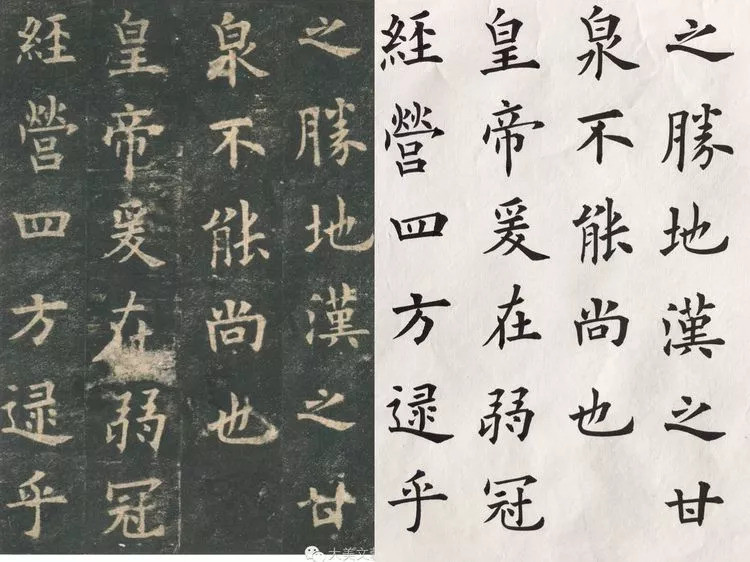 之勝地漢之甘
泉不能尚也
皇帝爰在弱冠
經營四方逮乎
之勝地漢之甘
泉不能尚也
皇帝爰在弱冠
經營四方逮乎
大美文